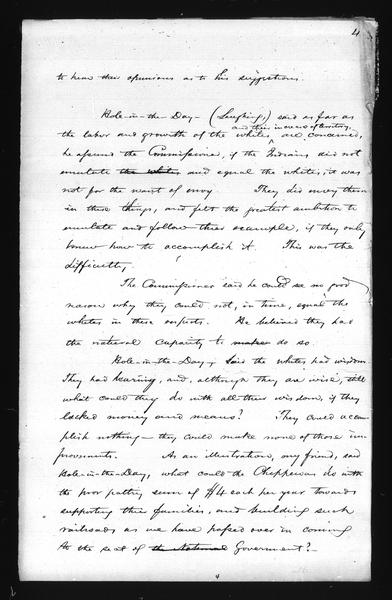 4
to hear their opinions as to his suggestions.
Hole-in-the-Day – (Laughing,) said as far as
and their increase of territory,
the labor and growth of the whites are concerned,
he assured the Commissioner, if the Indians did not
emulate the whites and equal the whites, it was
not for the want of envy They did envy them
in these things, and felt the greatest ambition to
emulate and follow their example, if they only
knew how to accomplish it. This was the
difficulty.
The Commissioner said he could see no good
reason why they could not, in time, equal the
whites in these respects. He believed they had
the natural capacity to make do so.
Hole-in-the-Day, Said the whites had wisdom.
They had learning, and, although they are wise, still
what could they do with all their wisdom, if they
lacked money and means? They could accom-
plish nothing – they could make none of those im-
provements. As an illustration, my friend, said
Hole-in-the-Day, what could the Chippewas do with
the poor paltry sum of $4 each per year towards
supporting their families, and building such
railroads as we have passed over in coming
to the seat of the National Government?